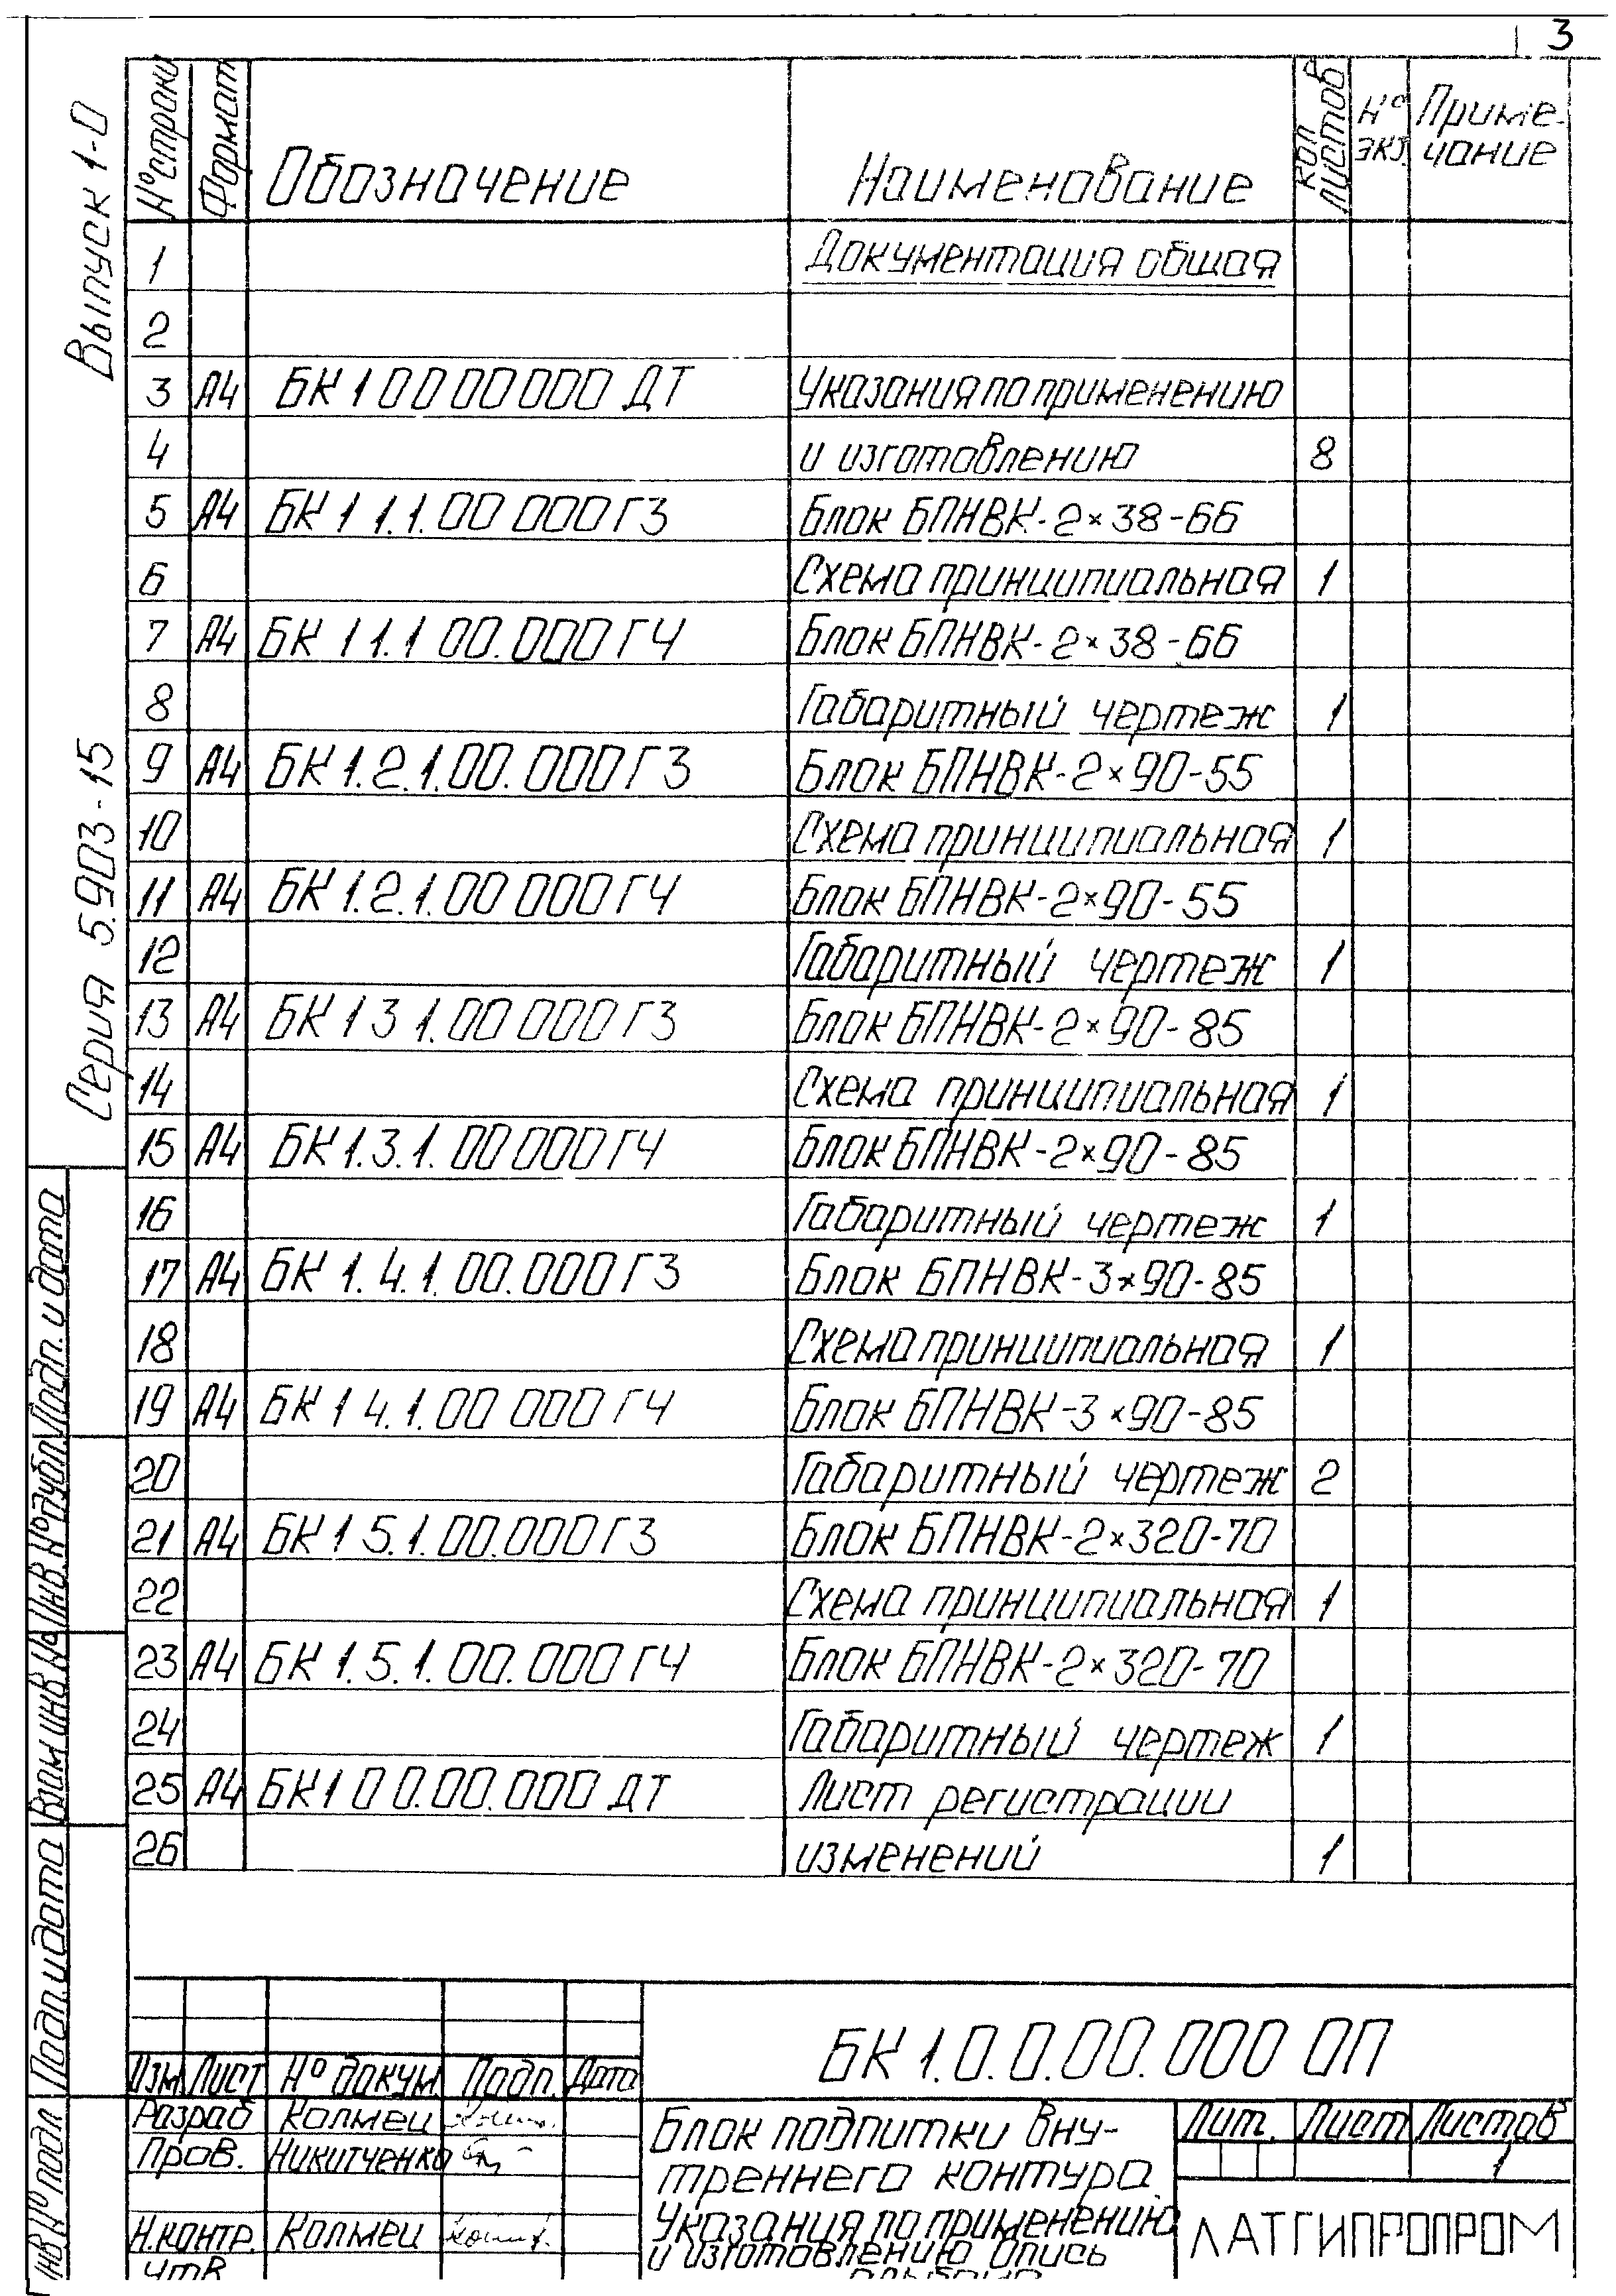 3
Выпуск 1-0
Серия 5.903-15
№ строки Формат Обозначение Наименование Кол листов № экз. Приме-
чание
1 Документация общая
2
3 А4 БК 1 0 0 00 000 ДТ Указания по применению
4 и изготовлению 8
5 А4 БК 1 1.1.00 000 ГЗ Блок БПНВК-2×38-66
6 Схема принципиальная 1
7 А4 БК 1 1.1 00.000 ГЧ Блок БПНВК-2×38-66
8 Габаритный чертеж 1
9 А4 БК 1.2.1.00.000 ГЗ Блок БПНВК-2×90-55
10 Схема принципиальная 1
11 А4 БК 1.2.1.00 000 ГЧ Блок БПНВК-2×90-55
12 Габаритный чертеж 1
13 А4 БК 1 3 1.00 000 ГЗ Блок БПНВК-2×90-85
14 Схема принципиальная 1
15 А4 БК 1.3.1.00 000 ГЧ Блок БПНВК-2×90-85
16 Габаритный чертеж 1
17 А4 БК 1.4.1.00.000 ГЗ Блок БПНВК-3×90-85
18 Схема принципиальная 1
19 А4 БК 1 4.1.00 000 ГЧ Блок БПНВК-3×90-85
20 Габаритный чертеж 2
21 А4 БК 1 5.1.00.000 ГЗ Блок БПНВК-2×320-70
22 Схема принципиальная 1
23 А4 БК 1.5.1.00.000 ГЧ Блок БПНВК-2×320-70
24 Габаритный чертеж 1
25 А4 БК 1 0 0.00.000 ДТ Лист регистрации
26 изменений 1
Инв № подл Подп. и дата Взам инв № Инв. № дубл. Подп. и дата
БК 1.0.0.00.000 ОП
Изм Лист № докум Подп. Дата
Разраб Колмец
Пров. Никитченко
Н.контр. Колмец
Утв
Блок подпитки вну-
треннего контура.
Указания по применению
и изготовлению Опись
альбома
Лит. Лист Листов
1
ЛАТГИПРОПРОМ